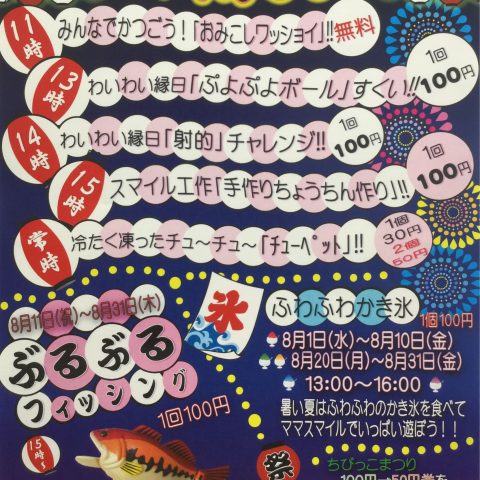 11時
みんなでかつごう!「おみこしワッショイ」!!
無料
13時
わいわい縁日「ぷよぷよボール」すくい!!
1回
100円
14時
わいわい縁日「射的」チャレンジ!!
1回
100円
15時
スマイル工作「手作りちょうちん作り」!!
1回
100円
常時
冷たく凍ったチュ〜チュ〜「チューペット」!!
1個
30円
2個
50円
8月11日(祝)〜8月31日(木)
ぶるぶる
フィッシング
1回100円
15時〜
氷
ふわふわかき氷
1個100円
8月1日(水)〜8月10日(金)
8月20日(月)〜8月31日(金)
13:00〜16:00
暑い夏はふわふわのかき氷を食べて
ママスマイルでいっぱい遊ぼう!!
祭
ちびっこまつり
100円→50円券を